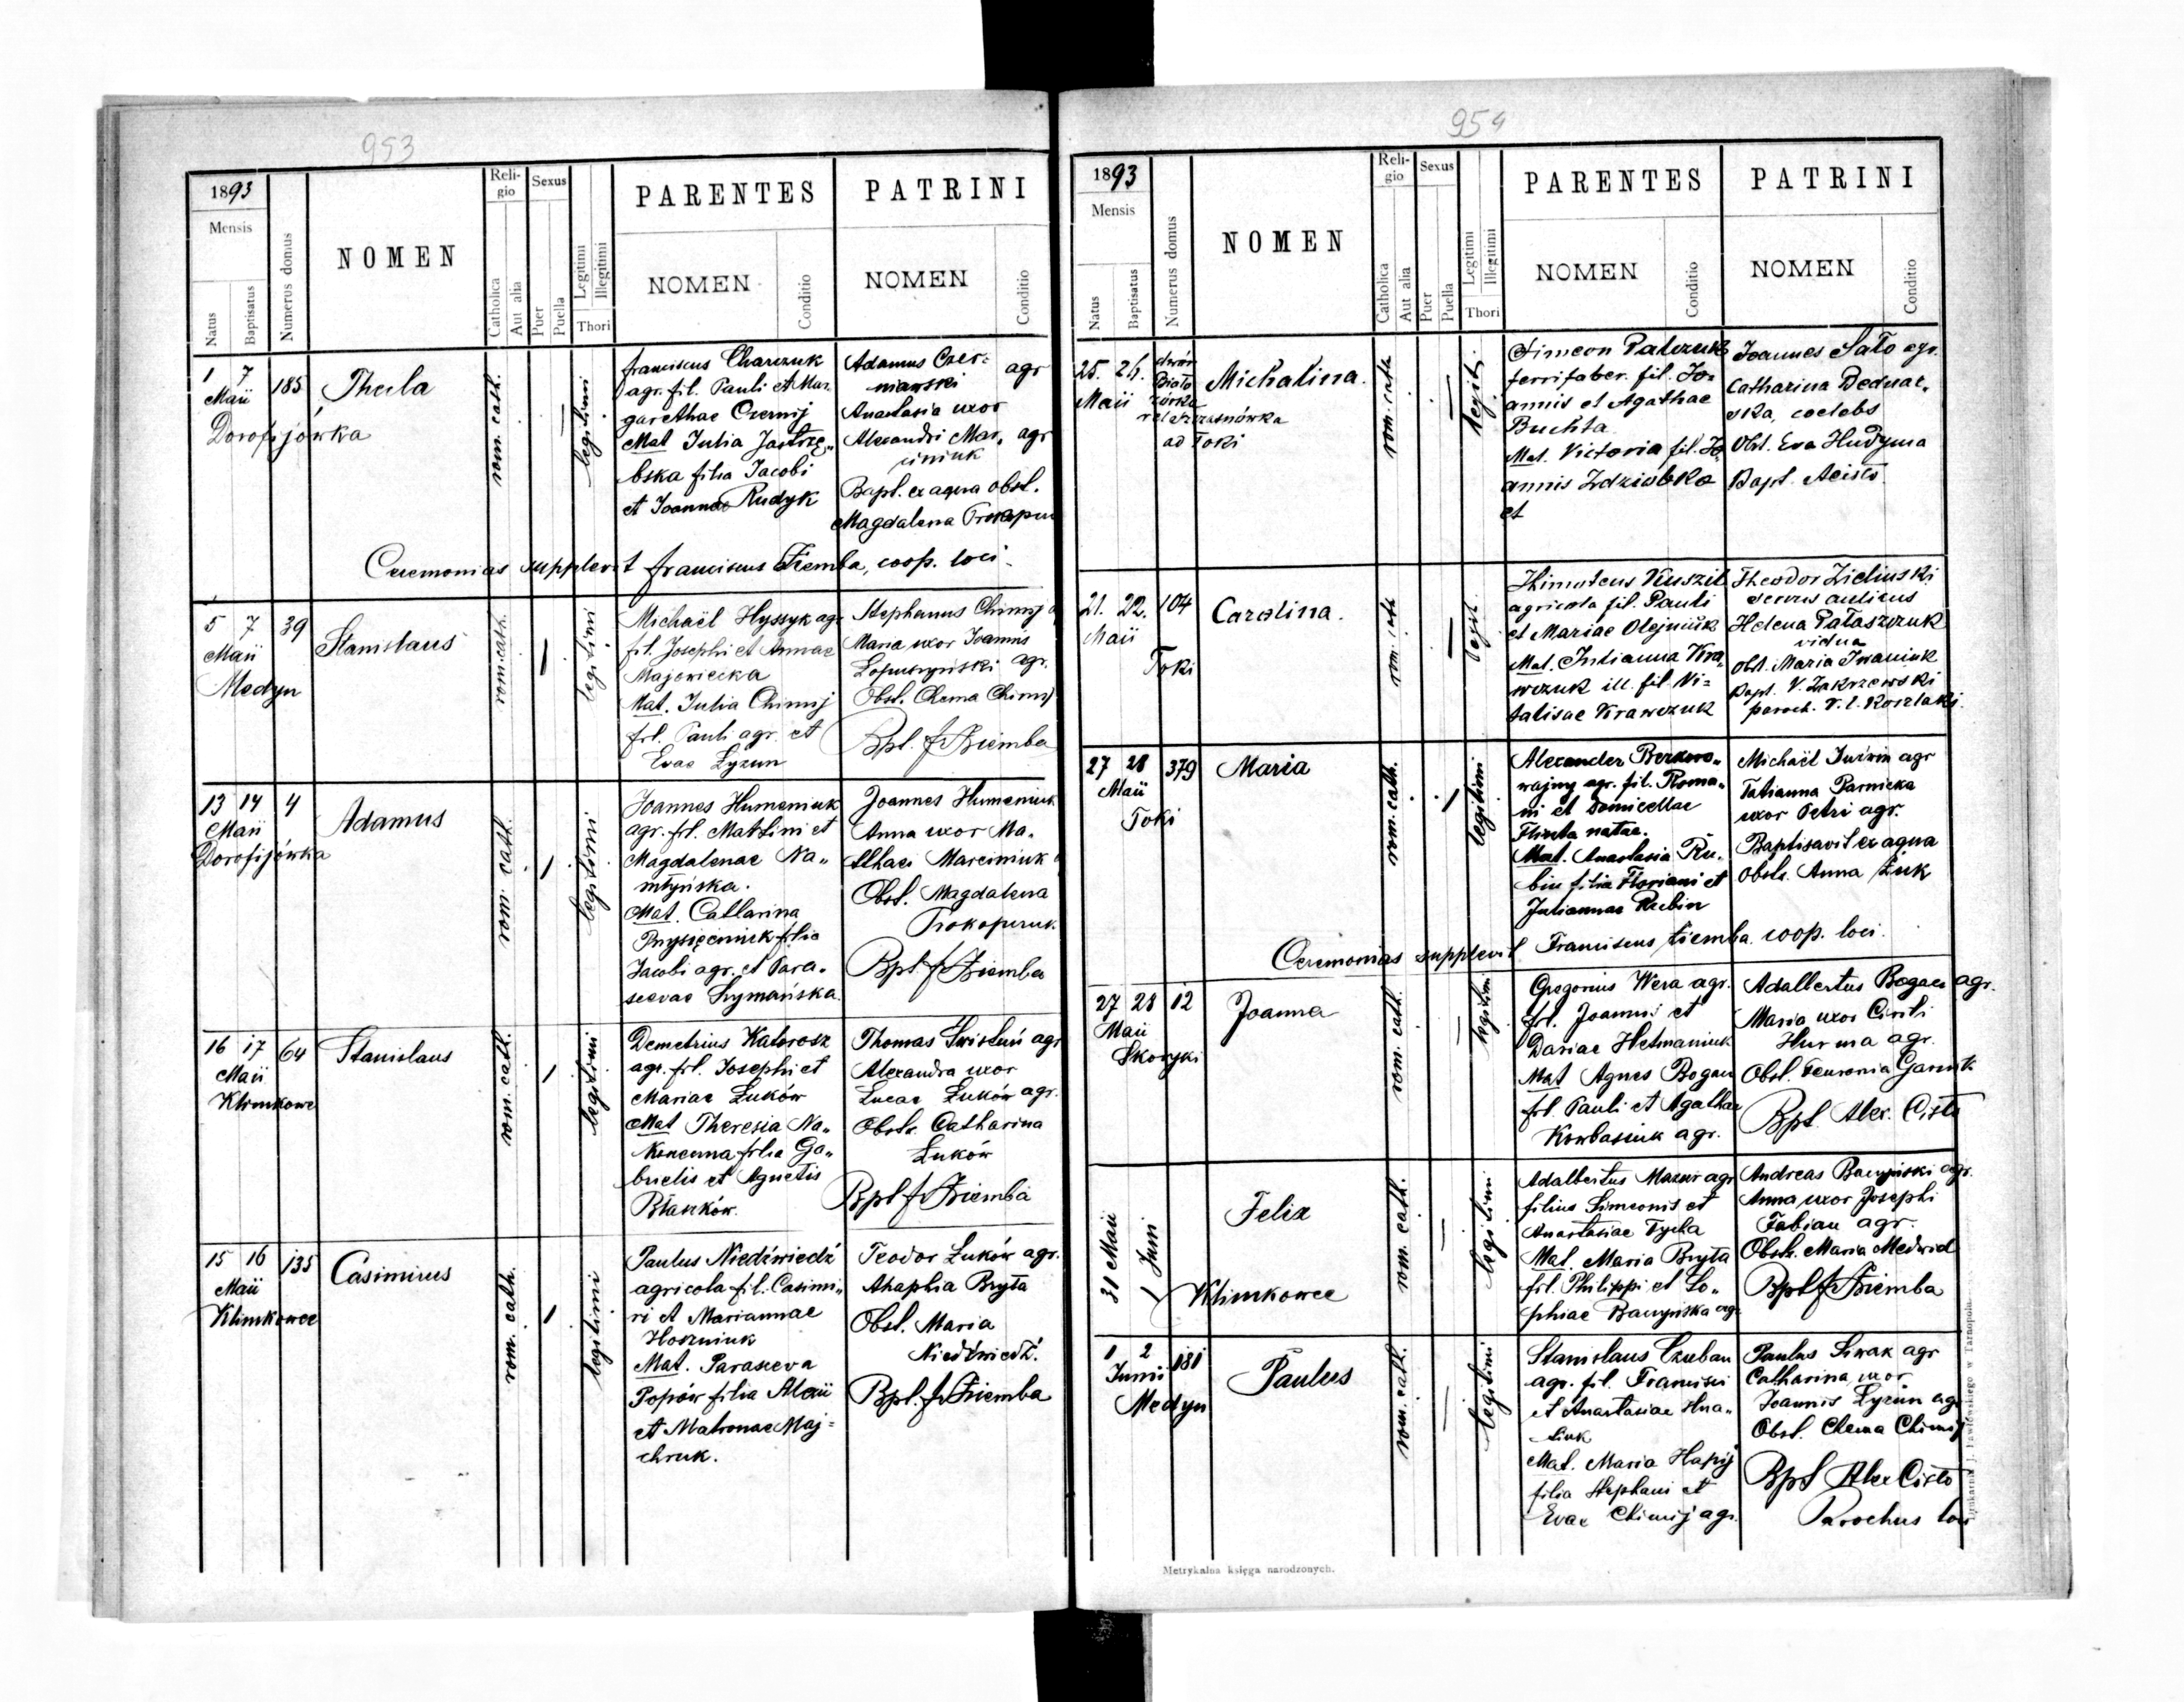 953
1893
Mensis
Natus
Baptisatus
Numerus domus
NOMEN
Reli-
gio
Catholica
Aut alia
Sexus
Puer
Puella
Legitimi
Illegitimi
Thori
PARENTES
NOMEN
Conditio
PATRINI
NOMEN
Conditio
1 7
Maii
185
Dorofijówka
Thecla
rom. cath.
legitimi
Franciscus Charczuk
agr. fil. Pauli et Mar-
garethae Czernij
Mat Julia Jastrzę„
bska filia Jacobi
et Joannae Rudyk
Adamus Czer-
niawski agr
Anastasia uxor
Alexandri Mar„ agr
ciniuk
Bapt. ex aqua obst.
Magdalena
Ceremonias supplevit Franciscus Ziemba, coop. loci
5 7
Maii
39
Medyn
Stanislaus
rom. cath.
legitimi
Michaël Hyssyk agr
fil. Josephi et Annae
Majewiecka
Mat. Julia Chimij
fil. Pauli agr. et
Evae Lyzun
Stephanus Chimij
Maria uxor Joannis
agr.
Obst. Chema Chimij
Bpt. f Ziemba
13 14
Maii
4
Dorofijówka
Adamus
rom. cath.
legitimi
Joannes Humeniuk
agr. fil. Martini et
Magdalenae Na„
mtyńska.
Mat. Catharina
Prysięźniuk filia
Jacobi agr. et Para„
scevae Szymańska.
Joannes Humeniuk
Anna uxor Ma„
tthaei Marciniuk
Obst. Magdalena
Prokopczuk.
Bpt f Ziemba
16 17
Maii
64
Klimkowce
Stanislaus
rom. cath.
legitimi
Demetrius Katorosz
agr. fil. Josephi et
Mariae Łuków
Mat Theresia Na„
Konecnna filia Ga„
brielis et Agnetis
Błaszków.
Thomas Świstuń agr
Alexandra uxor
Lucae Łuków agr.
Obstr. Catharina
Łuków
Bpt f Ziemba
15 16
Maii
135
Klimkowce
Casimirus
rom. cath.
legitimi
Paulus Niedźwiedź
agricola fil. Casimi„
ri et Mariannae
Hoszniuk
Mat. Parasceva
Popów filia Alexii
et Matronae Maj-
chruk.
Teodor Łuków agr.
Ahaphia Bryta
Obst. Maria
Niedźwiedź.
Bpt. f Ziemba
954
1893
Mensis
Natus
Baptisatus
Numerus domus
NOMEN
Reli-
gio
Catholica
Aut alia
Sexus
Puer
Puella
Legitimi
Illegitimi
Thori
PARENTES
NOMEN
Conditio
PATRINI
NOMEN
Conditio
25. 26.
Maii
dwór
Biało
zórka
ad Toki
Michalina.
rom. cath
legit.
Simeon Palczuk
ferrifaber. fil. Jo-
annis et Agathae
Buchta
Mat. Victoria fil. Jo
annis Zdziebko
et
Joannes Sało agr.
Catharina Bednar„
ska, coelebs
Obst. Eva Hudyma
Bapt. A Cisło
21. 22.
Maii
104
Toki
Carolina.
rom. cath
legit.
Thimoteus Kuszil
agricola fil. Pauli
et Mariae Olejniuk
Mat. Julianna Kra„
wczuk ill. fil. Vi-
talisae Krawczuk
Theodor Zieliński
servus aulicus
Helena Pałaszczuk
vidua
Obst. Maria Iwaniuk
Bapt. V. Zakrzewski
paroch. r. l. Koszlaki.
27 28
Maii
379
Toki
Maria
rom. cath.
legitimi
Alexander
agr. fil. Roma„
ni et Domicellae
natae.
Mat. Anastasia Ru„
bin filia Floriani et
Juliannae Rubin
Michaël agr
Tatianna Parnicka
uxor Petri agr.
Baptisavit ex aqua
obstr. Anna Żuk
Ceremonias supplevit Franciscus Ziemba coop. loci.
27 28
Maii
12
Skoryki
Joanna
rom. cath.
legitimi
Gregorius Wera agr.
fil. Joannis et
Dariae Hetmaniuk
Mat Agnes Bogacz
fil. Pauli et Agathae
Korbasiuk agr.
Adalbertus Bogacz agr.
Maria uxor Cirili
Hurma agr.
Obst. Fevronia
Bpt. Alex. Cisło
31 Maii
1 Juni
Klimkowce
Felix
rom. cath.
legitimi
Adalbertus Mazur agr
filius Simeonis et
Anastasiae Tycha
Mat. Maria Bryta
fil. Philippi et So„
phiae Baczyńska agr.
Andreas Baczyński agr.
Anna uxor Josephi
Fabian agr.
Obstr. Maria Medwid
Bpt f Ziemba
1 2
Junii
181
Medyn
Paulus
rom. cath.
legitimi
Stanislaus Czuban
agr. fil. Francisci
et Anastasiae Hna„
tiuk
Mat. Maria Hapij
filia Stephani et
Evae Chimij agr.
Paulus Siwak agr
Catharina uxor
Joannis Lyzun agr
Obst. Chema Chimij
Bpt Alex Cisło
Parochus loci
Metrykalna księga narodzonych.
Drukarnia J. Pawłowskiego w Tarnopolu.